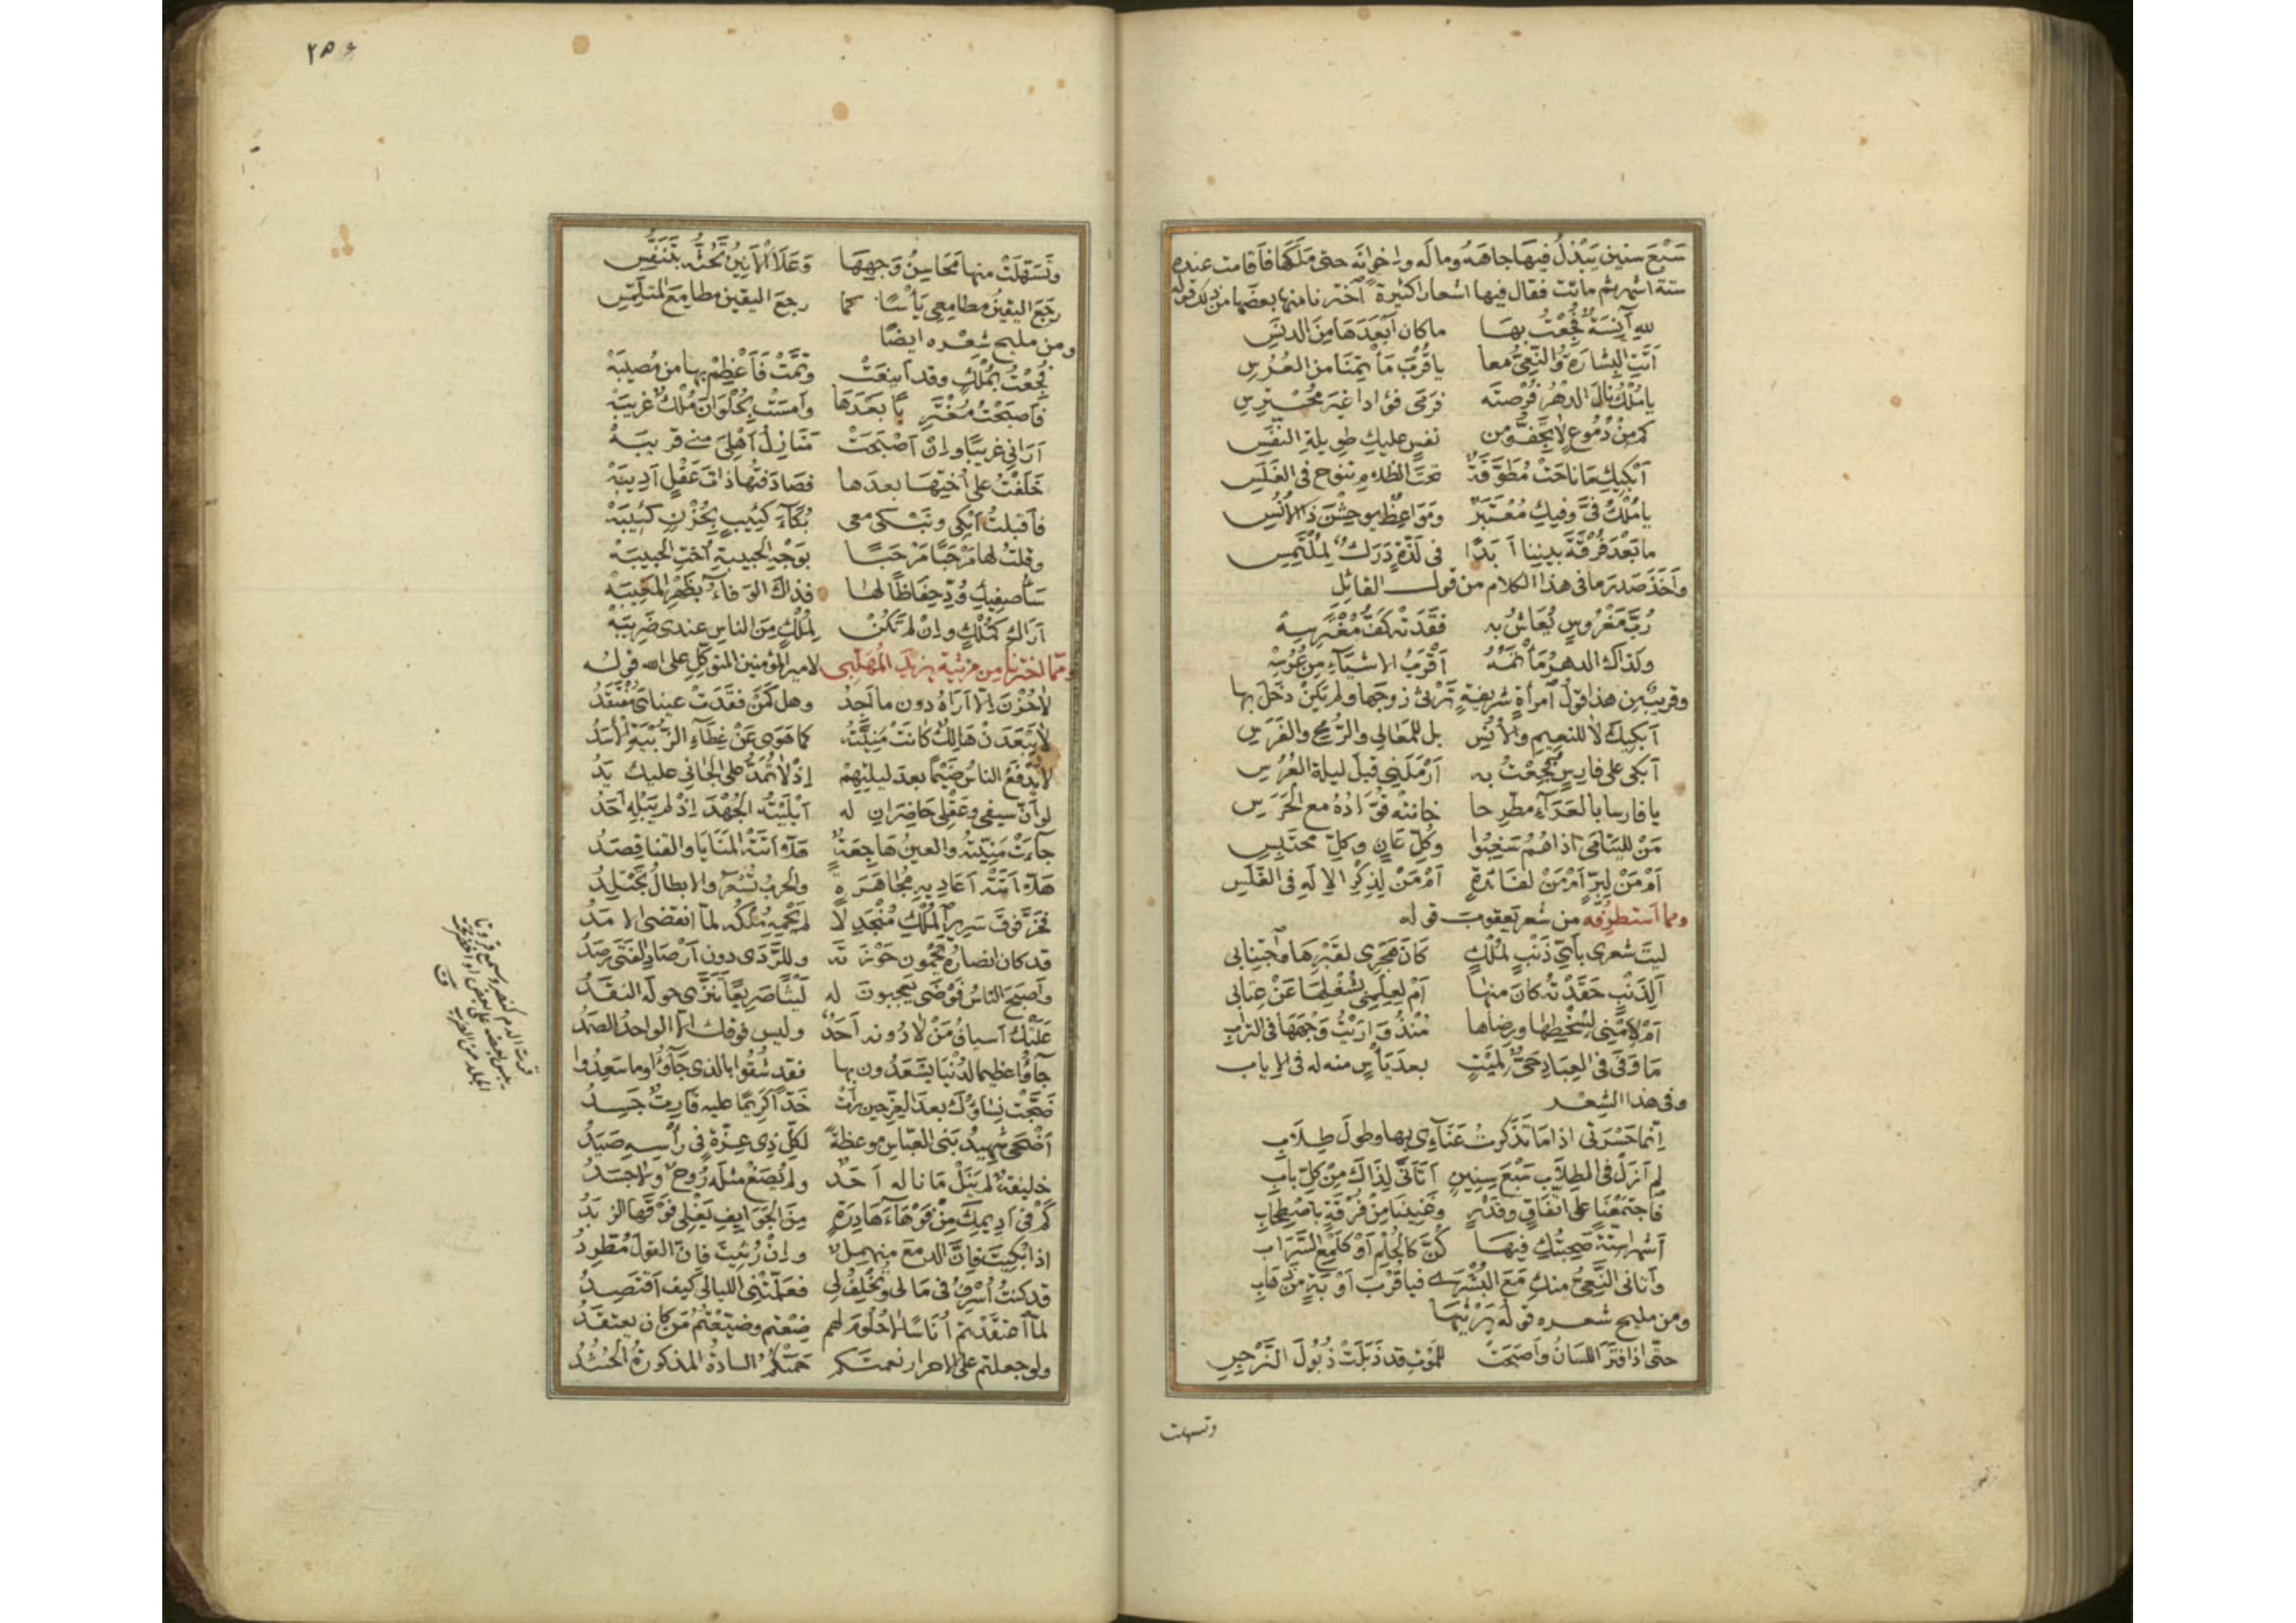 سَبْعَ سنين يَبْذلُ فيهَا جاهَهُ وماله واخوانه حتى مَلَكَها فأقامت عنده
ستة اشهر ثم ماتت فقال فيها اشعارا كثيرة اخترنا منها بعضها من ذلك قوله
لله آنِسَةٌ فُجِعْتُ بهَا ماكان أَبْعَدَهَا مِنَ الدنَسِ
أَتَتِ البِشَارَةُ والنَّعِىُّ معا ياقُرْبَ مَأتمنَا من العُرُسِ
يا مُلْكُ نالَ الدهْرُ فُرْصتَه فرَمَى فؤادا غيرَ مُحْتَرِسِ
كم مِنْ دُمُوعٍ لا تَجِفُّ ومن نفسٍ عليكِ طويلةِ النفَسِ
أَبْكِيكِ مَا ناحَتْ مُطَوَّقَةٌ تحتَ الظلام تنوح فى الغَلَسِ
يا مُلْكُ فىَّ وفيكِ مُعْتَبَرٌ ومَوَاعِظٌ يوحِشْنَ ذا الأُنُسِ
ما بَعْدَ فُرْقَةِ بيننا أَبَدًا فى لَذَّةٍ دَرَكٌ لِمُلْتَمِسِ
وأَخَذَ صَدرَ ما فى هذا الكلام من قول القائل
رُبَّ مَغْرُوسٍ يُعَاشُ به فقَدَتْهُ كَفُّ مُغْتَرِسِهْ
وكذاك الدهرُ مَأْتمُهُ أَقْرَبُ الاشيَآءِ مِن عُرُسِهْ
وقريبٌ مِن هذا قولُ امرأةٍ شريفةٍ تَرْثى زوجَها ولم يَكنْ دَخَلَ بها
أبكِيكَ لا للنعِيمِ والأُنُسِ بل للمَعَالِى والرُّمحِ والفَرَسِ
أبكى على فارسٍ فُجِعْتُ به أَرْمَلَنِى قبلَ ليلةِ العُرُسِ
يا فارسا بالعَرَآءِ مطّرحا خانتْه قُوَّادُهُ مع الحَرَسِ
مَنْ لليَتَامَى اذا هُمُ سَغِبُوا وكُلِّ عَانٍ وكلِّ محتَبِسِ
أَمْ مَنْ لِبِرٍّ أَمْ مَنْ لفَائدةٍ أَمْ مَنْ لِذِكْرِ الاِلَهِ فى الغَلَسِ
ومما استطرفه من شعر يَعقوب قوله
ليتَ شعرى بأىِّ ذَنْبٍ لمُلْكٍ كَانَ هَجْرِى لقَبْرِهَا واجْتِنابى
أَلِذَنْبٍ حَقَدْتُه كانَ منها أَمْ لعِلمى بشُغْلِهَا عَنْ عِتابى
أَمْ لأَمْنِى لسُخْطِها ورضاها مُنْذُ وَارَيْتُ وَجْهَهَا فى الترابِ
مَا وَفَى فى العِبَادِ حَىٌّ لمَيْتٍ بعدَ يَأْسٍ منه له فى الاياب
وفى هذا الشعر
انّما حَسْرَتى اذا مَا تَذَكرتُ عَنَآءِى بها وطولَ طِلَابى
لم أزلْ فى الطِلَاب سَبْعَ سِنِينٍ أتَأَتَّى لِذَاكَ مِنْ كلِّ بابِ
فاجتَمَعْنا على اتّفَاقٍ وقَدْرٍ وغَنِينَا مِنْ فُرْقَةٍ باصْطِحَابِ
أَشْهرا ستّةً صَحِبتُكِ فيهَا كُنَّ كالحُلْمِ أوْ كَلَمْعِ السَّرَابِ
وأتانى النَّعِىُّ منكِ مَعَ البُشْرَى فيا قُرْبَ أَوْبَةٍ مِن ذَهابِ
ومن مليح شعره قوله يَرْثيهَا
حتّى اذا فتَرَ اللسَانُ وأصبَحَتْ للمَوْتِ قد ذَبَلَتْ ذُبُولَ النَّرْجِسِ
وتسهلت
٢٥٤
وتَسَهّلَتْ منها مَحَاسِنُ وَجهِهَا وَعَلَا الأَنينُ تَحُثُّه بتَنَفُّسِ
رجَعَ اليقينُ مطامِعِى يَأْسًا كما رجعَ اليقين مطامِعَ المتلمّسِ
ومن مليح شِعْره ايضًا
فُجِعْتُ بمُلْكٍ وقد أينَعَتْ وتَمَّتْ فأَعْظِمْ بها من مُصِيبَهْ
فأصبَحْتُ مُغْتَرِبًا بَعْدَهَا وأمسَتْ بحُلْوَانَ مُلْكٌ غرِيبَهْ
أَرَانى غريبًا وإنْ أَصْبَحَتْ مَنَازِلُ أَهْلِى منى قريبَهْ
خَلَفْتُ على أختِهَا بعدَها فصَادَفتُها ذاتَ عَقْلٍ أَدِيبَهْ
فأقبلتُ أبكى وتبْكى معى بُكآءَ كئيبٍ بِحُزْنٍ كئيبَهْ
وقلتُ لها مَرْحَبًا مَرْحَبًا بوَجْهِ الحبيبةِ أختِ الحبيبَهْ
سأُصفِيكِ وُدِّى حِفَاظًا لها فذاكَ الوفاءُ بظَهْرِ المَغِيبَهْ
أرَاكِ كَمُلْكٍ وإنْ لم تَكُنْ لِمُلْكٍ مِنَ الناسِ عندى ضَرِيبَهْ
ومما اخترنا مِن مرثيةِ يزيدَ المُهَلَّبِى لامير المؤمنين المتوكِّلِ على الله قولُه
لا حُزْنَ الّا أرَاهُ دون ما أجِدُ وهل كَمَنْ فقَدَتْ عيناىَ مُفْتَقَدُ
لا يَبْعَدَنْ هَالِكٌ كانتْ مَنِيَّتُه كما هَوَى عَنْ غِطَآءِ الزُّبْيَةِ الأَسَدُ
لا يَدْفَعُ الناسُ ضَيْمًا بعدَ ليلتِهِمْ إذْ لا تُمَدُّ على الجانى عليك يَدُ
لو أنّ سيفى وعَقْلِى حَاضِرَانِ له أَبْلَيْتُهُ الجُهْدَ اِذْ لم يُبْلِهِ أَحَدُ
جآءَتْ مَنِيّتُه والعينُ هَاجِعَةٌ هَلَّا أَتَتْهُ المنَايَا والقنا قِصَدُ
هَلَّا أتَتْه أعَادِيهِ مُجَاهَرةً والحربُ تُسْعَرُ والابطالُ تَجْتَلِدُ
فخَرَّ فوقَ سَرِيرِ المُلْكِ مُنْجَدِلًا لم يَحْمِهِ مُلْكُه لمّا انقضى الامَدُ
قد كان انصارُهُ يَحْمُونَ حَوْزَتَه وللرَّدَى دون أَرْصَادِ الفَتَى رَصَدُ
وأصبَحَ الناسُ فَوْضَى يعجبونَ له لَيْثًا صَرِيعًا تنَزَّى حوله النقَدُ
عَلَتْكَ أسيافُ مَنْ لا دُونه أَحَدٌ وليس فوقك الّا الواحدُ الصمَدُ
جآؤا عظيما لدُنْيَا يَسْعَدُون بها فقد شَقُوا بالذى جَآؤُا وما سَعِدُوا
ضَجَّتْ نِسَاؤُكَ بعدَ العِزِّ حينَ رأَتْ خَدًّا كَرِيمًا عليه قَارِتٌ جَسِدُ
أضْحَى شهيدُ بَنى العبّاس موعظةً لكلّ ذِى عِزَّةٍ فى رأسِهِ صَيَدُ
خليفةٌ لم يَنَلْ مَا ناله أَحَدٌ ولم يُصَغْ مثلَه رُوحٌ ولا جسَدُ
كَمْ فى أدِيمِكَ مِنْ فَوْهَاءَ هَادِرَةٍ مِنَ الجَوَايِفِ يَغْلِى فَوْقَها الزبَدُ
اذا بُكِيتَ فإنّ الدمعَ منهمِلٌ وإنْ رُثِيتَ فإنّ القولَ مُطَّرِدُ
قد كنتُ أُسْرِفُ فى مَالى وتُخْلِفُ لِى فعَلَّمَتْنِى الليالى كيف أقتصِدُ
لمّا اعتقَدْتمُ أُنَاسًا لا حُلُومَ لهم ضِعْتم وضيّعْتُمُ مَنْ كان يعتقَدُ
ولو جعلتم على الاحرار نعمتَكم حَمَتْكُمُ السادةُ المذكورةُ الحُشُدُ